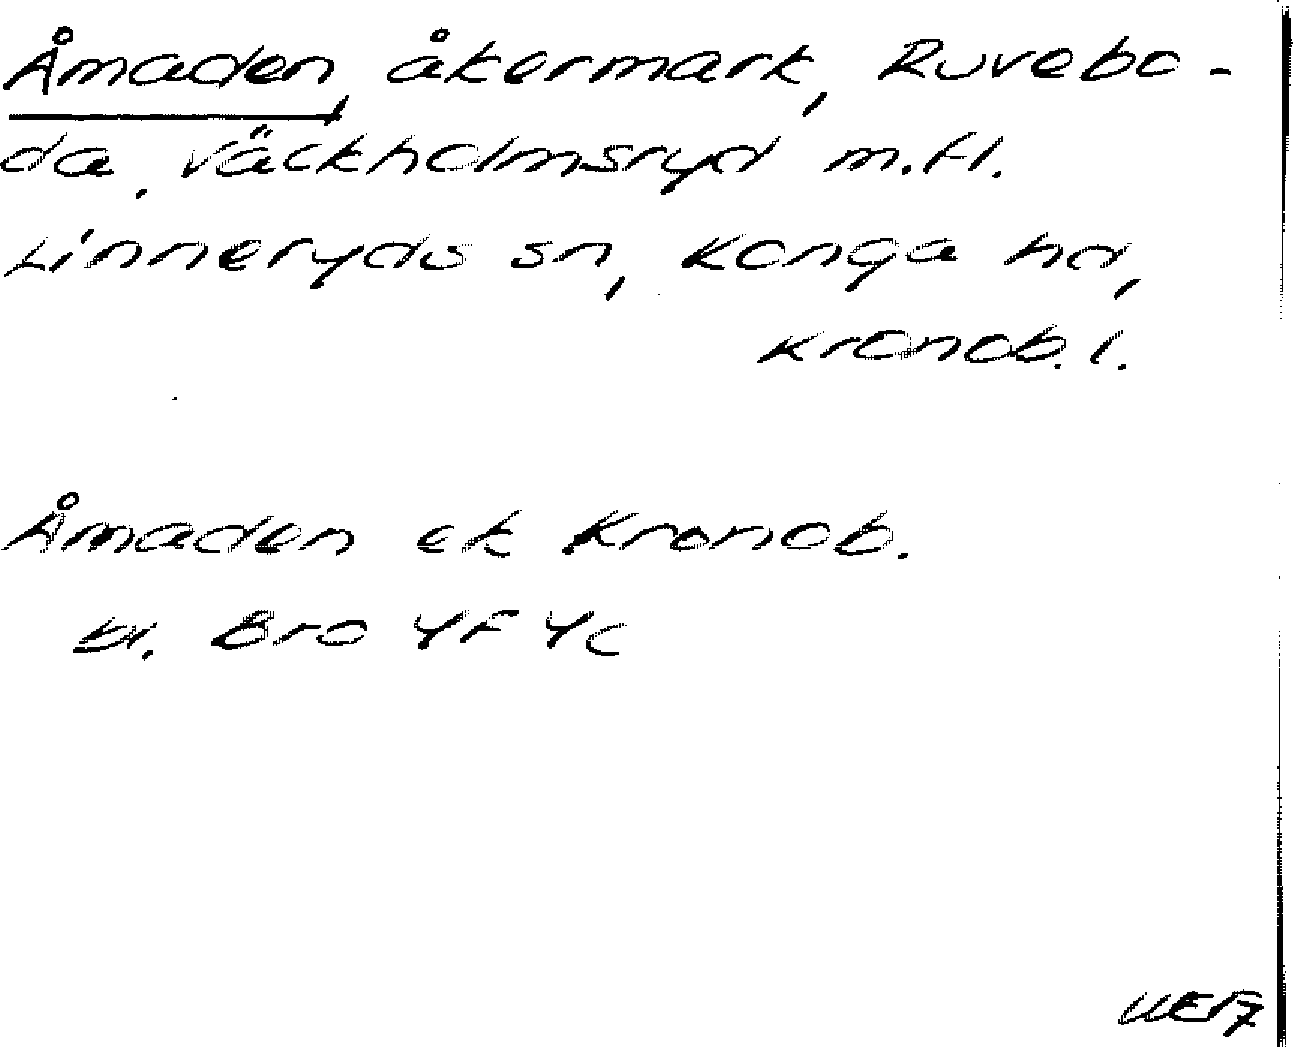 Åmaden, åkermark, Ruvebo-
da, Väckholmsryd m.fl.
Linneryds sn, Konga hd,
Kronob. l.
Åmaden ek Kronob.
bl. Bro 4F 4c